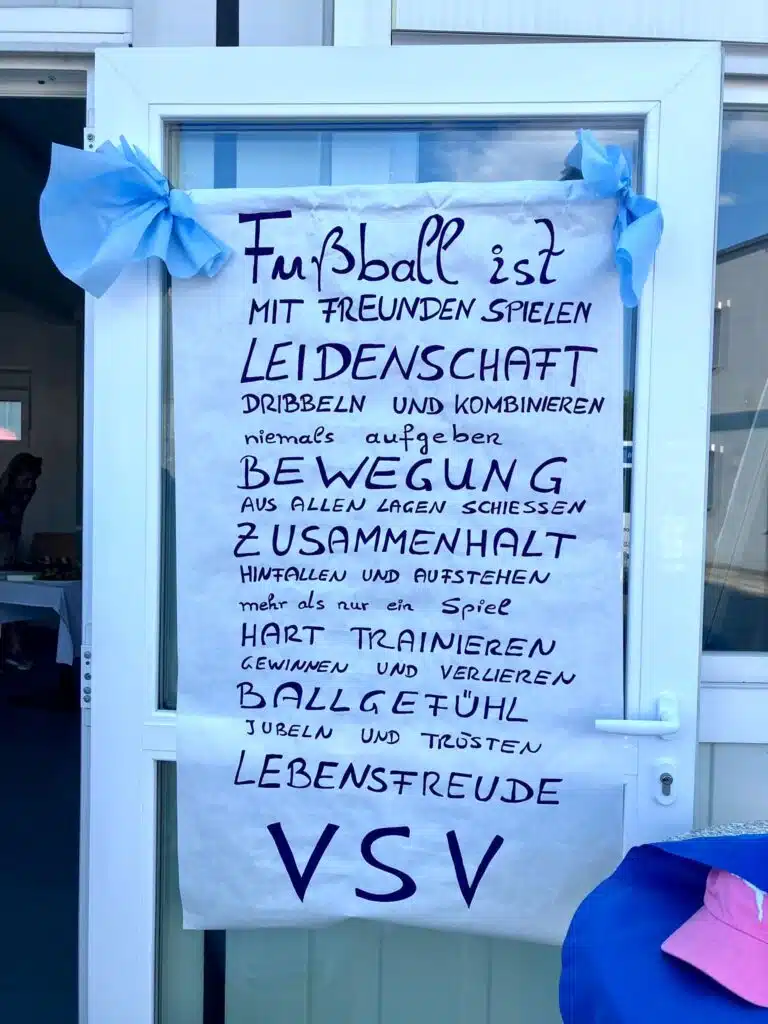 Fußball ist
MIT FREUNDEN SPIELEN
LEIDENSCHAFT
DRIBBELN UND KOMBINIEREN
niemals aufgeben
BEWEGUNG
AUS ALLEN LAGEN SCHIESSEN
ZUSAMMENHALT
HINFALLEN UND AUFSTEHEN
mehr als nur ein Spiel
HART TRAINIEREN
GEWINNEN UND VERLIEREN
BALLGEFÜHL
JUBELN UND TRÖSTEN
LEBENSFREUDE
VSV